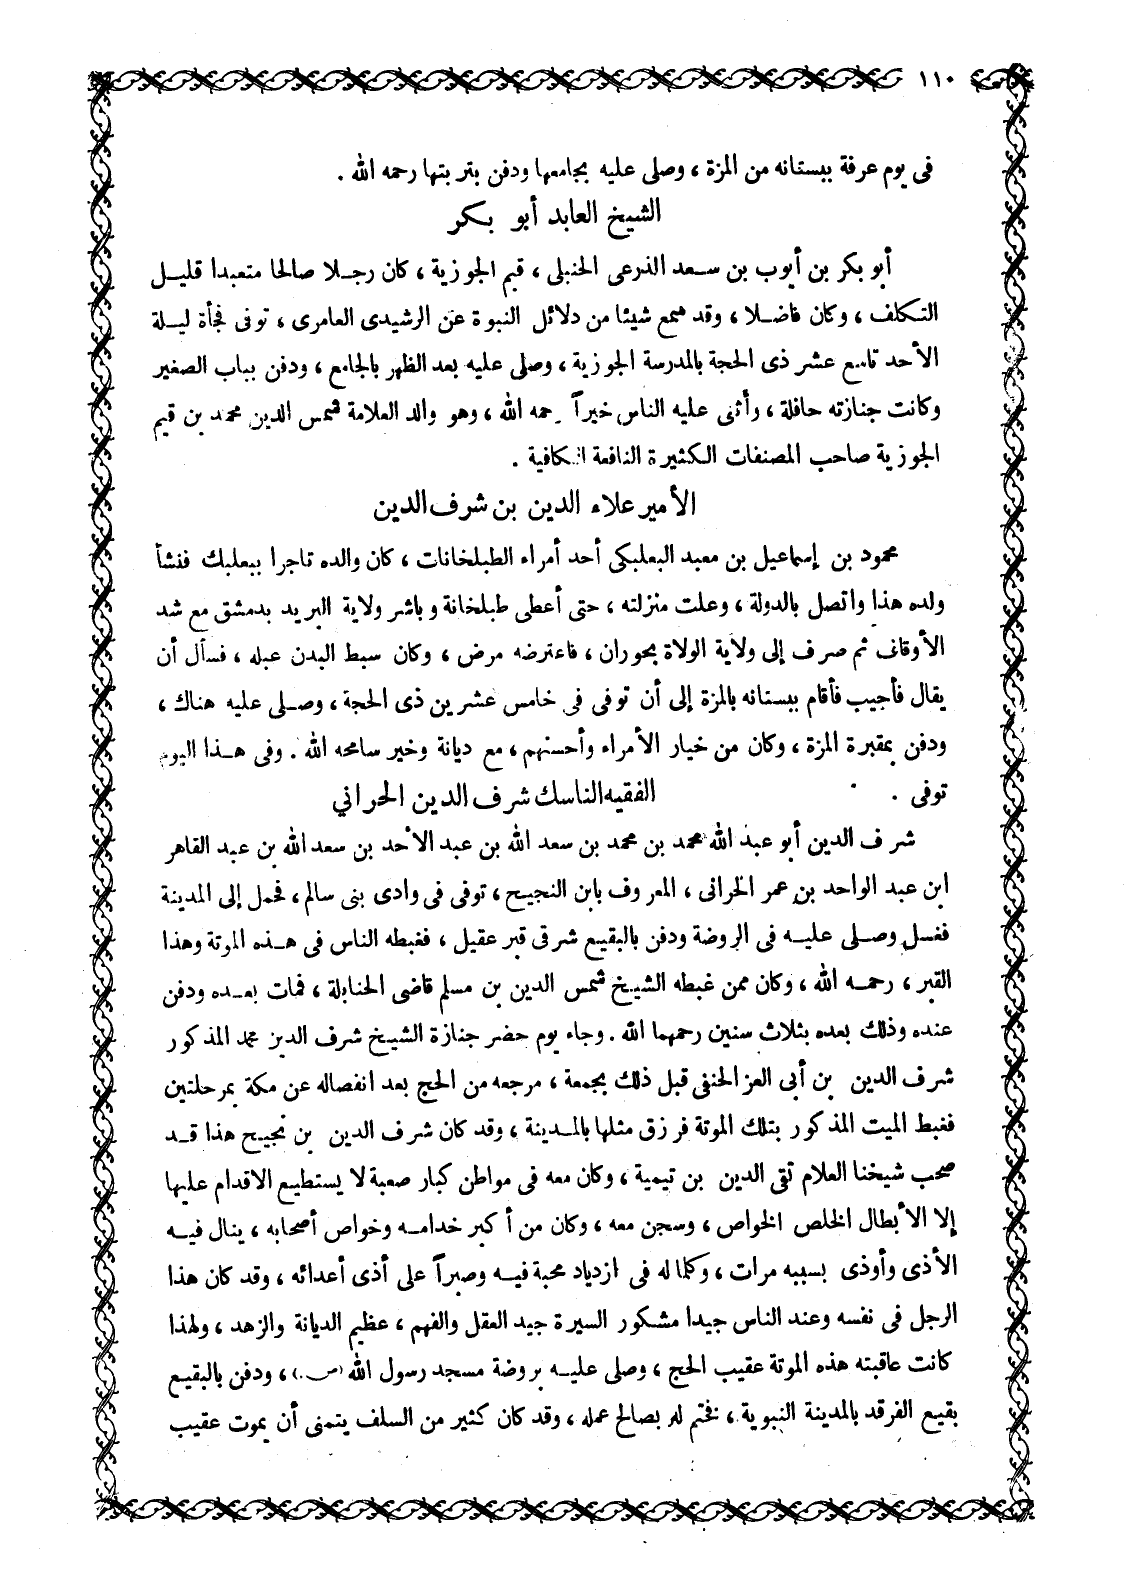 ١١٠
فى يوم عرفة ببستانه من المزة ، وصلى عليه بجامعها ودفن بتربتها رحمه الله .
الشيخ العابد أبو بكر
أبو بكر بن أيوب بن سعد الذرعى الحنبلى ، قيم الجوزية ، كان رجلا صالحا متعبدا قليل
التكلف ، وكان فاضلا ، وقد سمع شيئا من دلائل النبوة عن الرشيدى العامرى ، توفى فجأة ليلة
الأحد تاسع عشر ذى الحجة بالمدرسة الجوزية ، وصلى عليه بعد الظهر بالجامع ، ودفن بباب الصغير
وكانت جنازته حافلة ، وأثنى عليه الناس خيراً رحمه الله ، وهو والد العلامة شمس الدين محمد بن قيم
الجوزية صاحب المصنفات الكثيرة النافعة الكافية .
الأمير علاء الدين بن شرف الدين
محمود بن إسماعيل بن معبد البعلبكى أحد أمراء الطبلخانات ، كان والده تاجرا ببعلبك فنشأ
ولده هذا واتصل بالدولة ، وعلت منزلته ، حتى أعطى طبلخانة وباشر ولاية البريد بدمشق مع شد
الأوقاف ثم صرف إلى ولاية الولاة بحوران ، فاعترضه مرض ، وكان سبط البدن عبله ، فسأل أن
يقال فأجيب فأقام ببستانه بالمزة إلى أن توفى فى خامس عشرين ذى الحجة ، وصلى عليه هناك ،
ودفن بمقبرة المزة ، وكان من خيار الأمراء وأحسنهم ، مع ديانة وخير سامحه الله . وفى هذا اليوم
توفى . الفقيه الناسك شرف الدين الحراني
شرف الدين أبو عبد الله محمد بن محمد بن سعد الله بن عبد الأحد بن سعد الله بن عبد القاهر
ابن عبد الواحد بن عمر الحرانى ، المعروف بابن النجيح ، توفى فى وادى بنى سالم ، فحمل إلى المدينة
فغسل وصلى عليه فى الروضة ودفن بالبقيع شرقى قبر عقيل ، فغبطه الناس فى هذه الموتة وهذا
القبر ، رحمه الله ، وكان ممن غبطه الشيخ شمس الدين بن مسلم قاضى الحنابلة ، فمات بعده ودفن
عنده وذلك بعده بثلاث سنين رحمهما الله . وجاء يوم حضر جنازة الشيخ شرف الدين محمد المذكور
شرف الدين بن أبى العز الحنفى قبل ذلك بجمعة ، مرجعه من الحج بعد انفصاله عن مكة بمرحلتين
فغبط الميت المذكور بتلك الموتة فرزق مثلها بالمدينة ، وقد كان شرف الدين بن نجيح هذا قد
صحب شيخنا العلام تقى الدين بن تيمية ، وكان معه فى مواطن كبار صعبة لا يستطيع الاقدام عليها
إلا الأبطال الخلص الخواص ، وسجن معه ، وكان من أكبر خدامه وخواص أصحابه ، ينال فيه
الأذى وأوذى بسببه مرات ، وكلما له فى ازدياد محبة فيه وصبراً على أذى أعدائه ، وقد كان هذا
الرجل فى نفسه وعند الناس جيدا مشكور السيرة جيد العقل والفهم ، عظيم الديانة والزهد ، ولهذا
كانت عاقبته هذه الموتة عقيب الحج ، وصلى عليه بروضة مسجد رسول الله (ص.) ، ودفن بالبقيع
بقيع الغرقد بالمدينة النبوية ، فختم له بصالح عمله ، وقد كان كثير من السلف يتمنى أن يموت عقيب